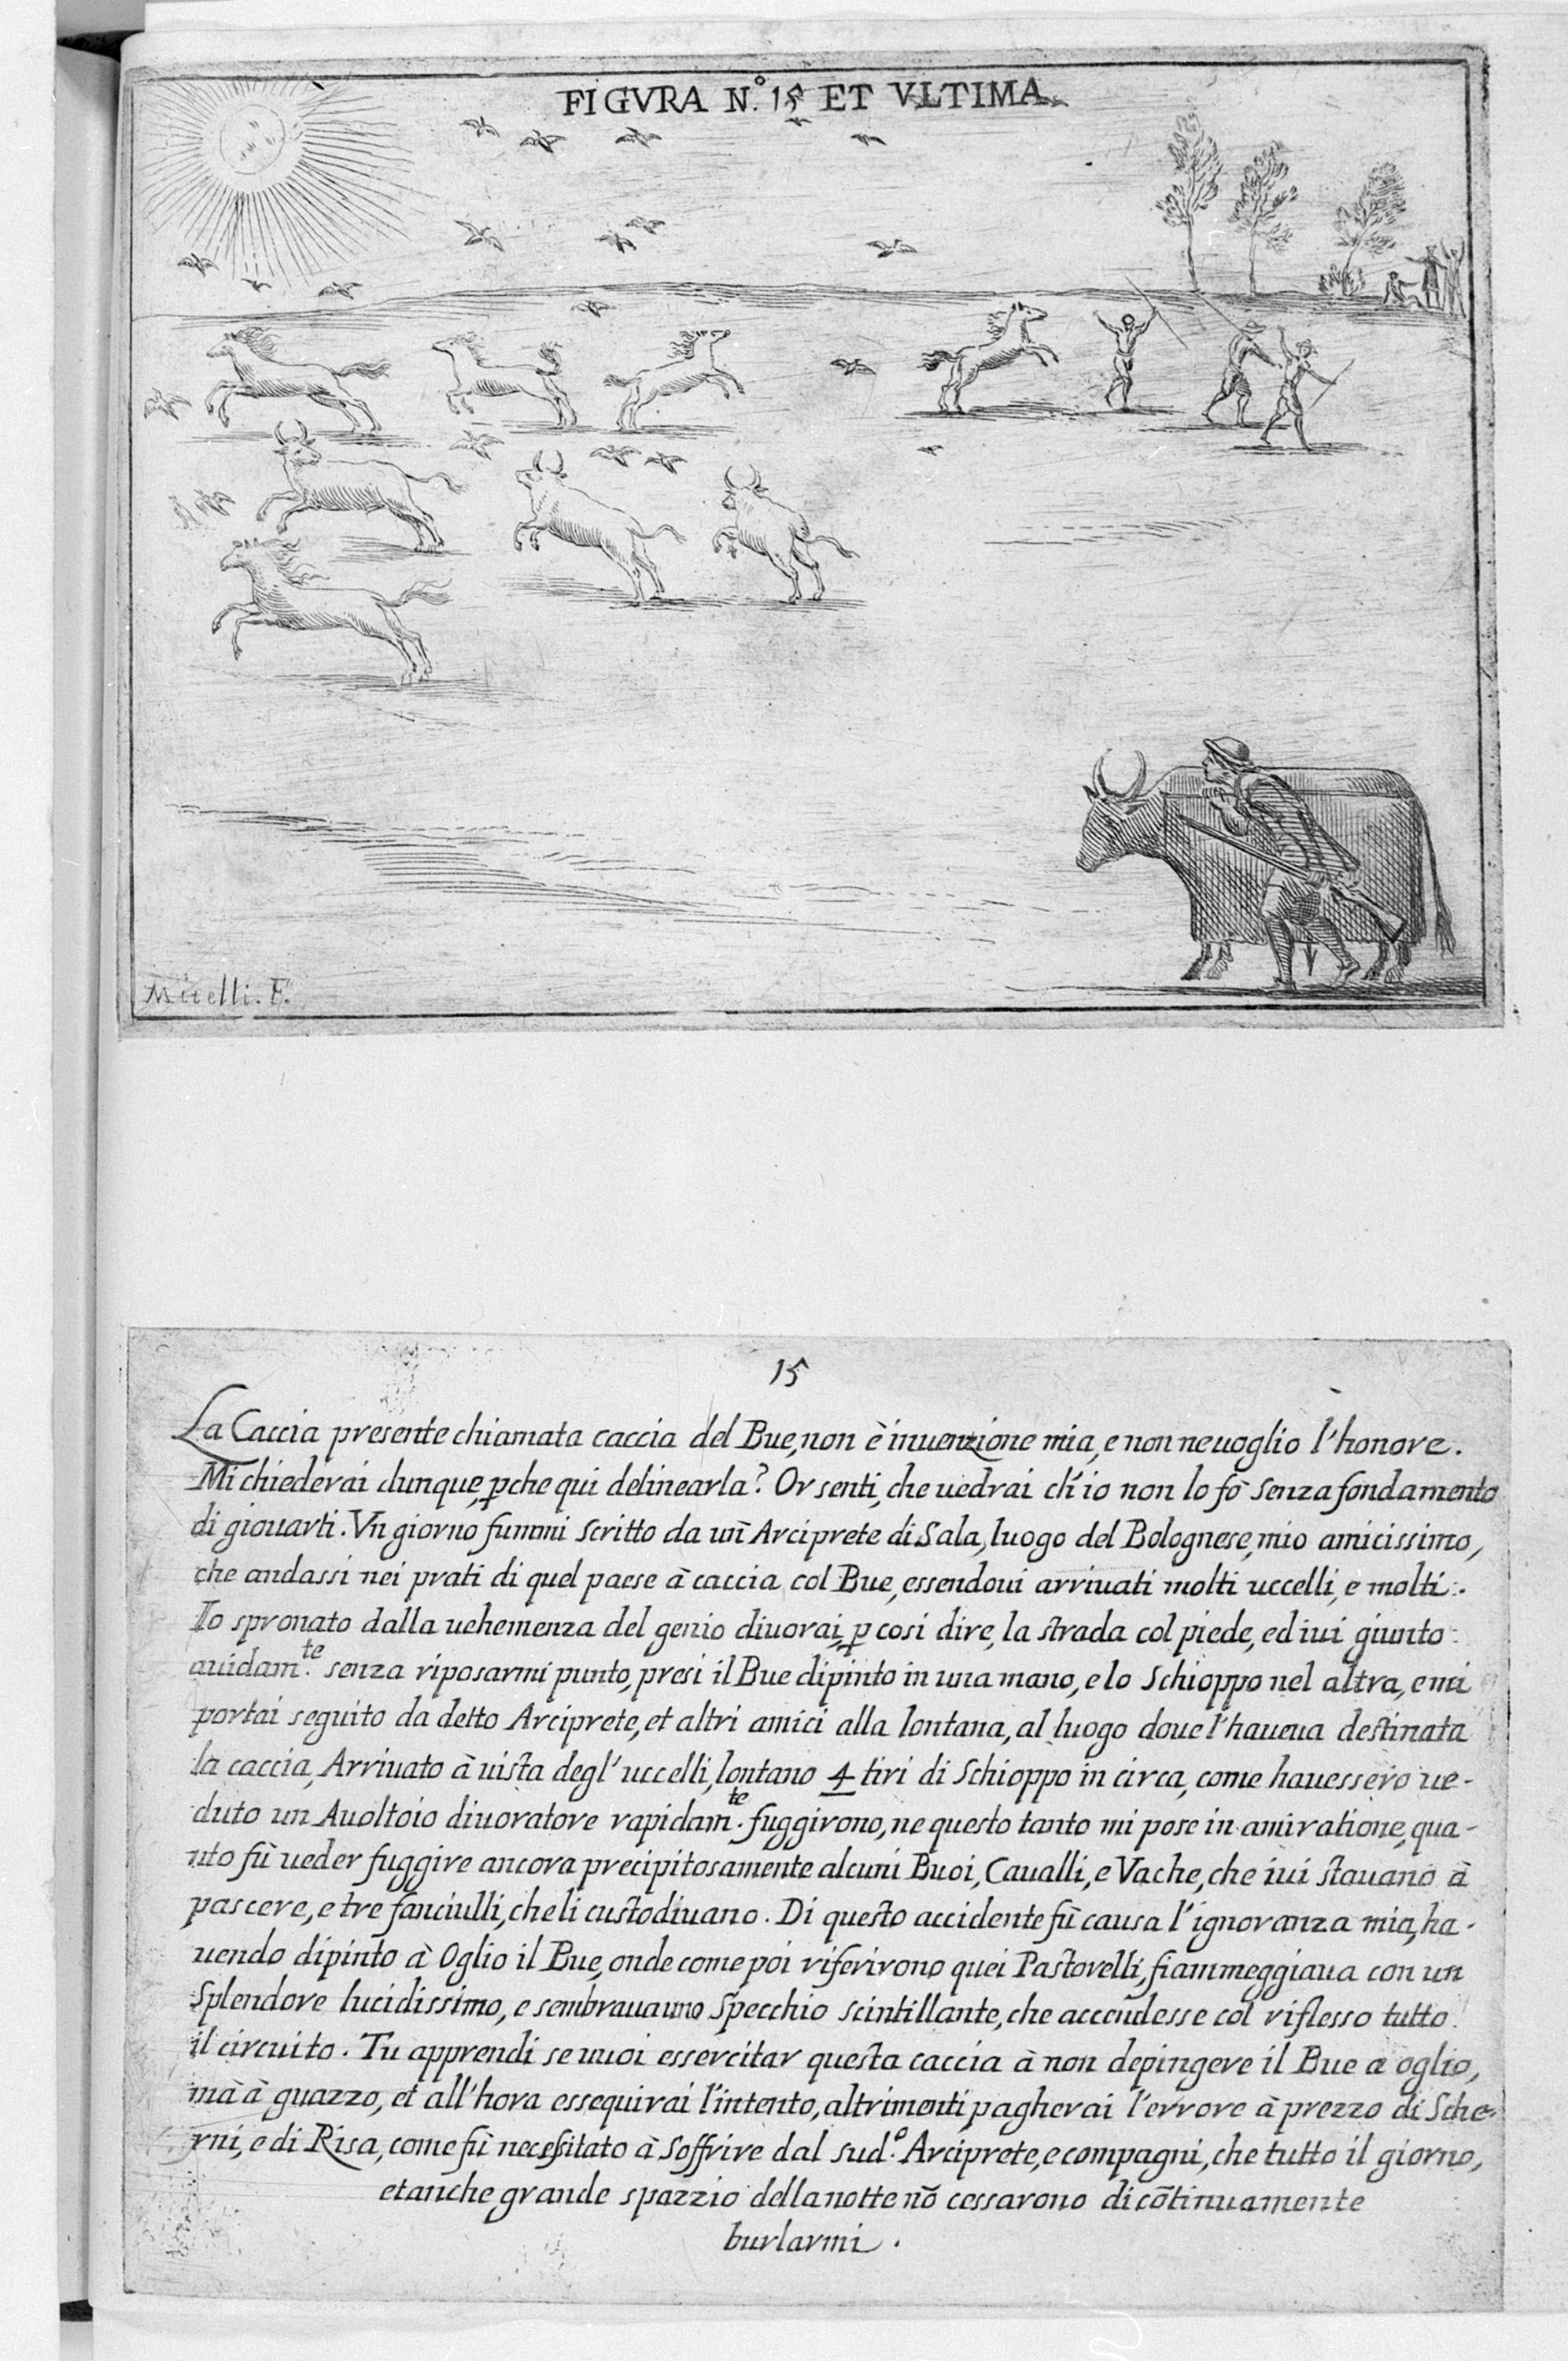 FIGVRA N.º 15 ET VLTIMA
Mitelli. F.
15
La Caccia presente chiamata caccia del Bue, non è inuenzione mia, e non ne uoglio l'honore.
Mi chiederai dunque, ꝑche qui delinearla? Or senti, che uedrai ch'io non lo fò senza fondamento
di giouarti. Vn giorno fummi scritto da un Arciprete di Sala, luogo del Bolognese, mio amicissimo,
che andassi nei prati di quel paese à caccia col Bue, essendoui arriuati molti uccelli, e molti.
Io spronato dalla uehemenza del genio diuorai, ꝑ cosi dire, la strada col piede, ed iui giunto
auidam.te senza riposarmi punto, presi il Bue dipinto in una mano, e lo Schioppo nel altra, e mi
portai seguito da detto Arciprete, et altri amici alla lontana, al luogo doue l'haueua destinata
la caccia, Arriuato à uista degl'uccelli, lontano 4 tiri di Schioppo in circa, come hauessero ue-
duto un Auoltoio diuoratore rapidam.te fuggirono, ne questo tanto mi pose in amiratione, qua-
nto fù ueder fuggire ancora precipitosamente alcuni Buoi, Caualli, e Vache, che iui stauano à
pascere, e tre fanciulli, che li custodiuano. Di questo accidente fù causa l'ignoranza mia, ha-
uendo dipinto à Oglio il Bue, onde come poi riferirono quei Pastorelli, fiammeggiaua con un
Splendore lucidissimo, e sembraua uno Specchio scintillante, che accendesse col riflesso tutto
il circuito. Tu apprendi se uuoi essercitar questa caccia à non depingere il Bue a oglio,
mà à guazzo, et all'hora essequirai l'intento, altrimenti pagherai l'errore à prezzo di Sche-
rni, e di Risa, come fù necessitato à Soffrire dal sud.º Arciprete, e compagni, che tutto il giorno,
et anche grande spazzio della notte nõ cessarono di cõtinuamente
burlarmi.